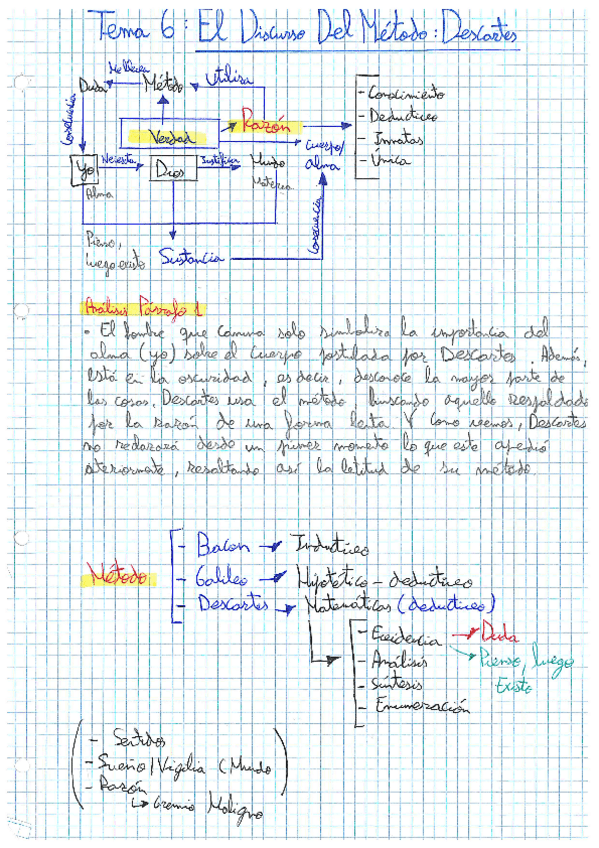 Tema 6: El Discurso Del Método: Descartes
Duda
Método
Utiliza
Consecuencia
Verdad
Razón
- Conocimiento
- Deductivo
- Innatas
- Única
Cuerpo/
Alma
Yo
Necesita
Dios
Justifica
Mundo
Materia
Alma
Pienso,
luego existo
Sustancia
Consecuencia
Análisis Párrafo 1
• El hombre que camina solo simboliza la importancia del
alma (yo) sobre el cuerpo postulada por Descartes. Además,
está en la oscuridad, es decir, desconoce la mayor parte de
las cosas. Descartes usa el método buscando aquello respaldado
por la razón de una forma lenta. Y como vemos, Descartes
no desde un primer momento lo que este
, resaltando así la de su método.
Método
- Bacon → Inductivo
- Galileo → Hipotético-deductivo
- Descartes → Matemáticas (deductivo)
- Evidencia → Duda
→ Pienso, luego
Existo
- Análisis
- Síntesis
- Enumeración
- Sentidos
- Sueño/Vigilia (Mundo
- Razón
↳ Genio Maligno